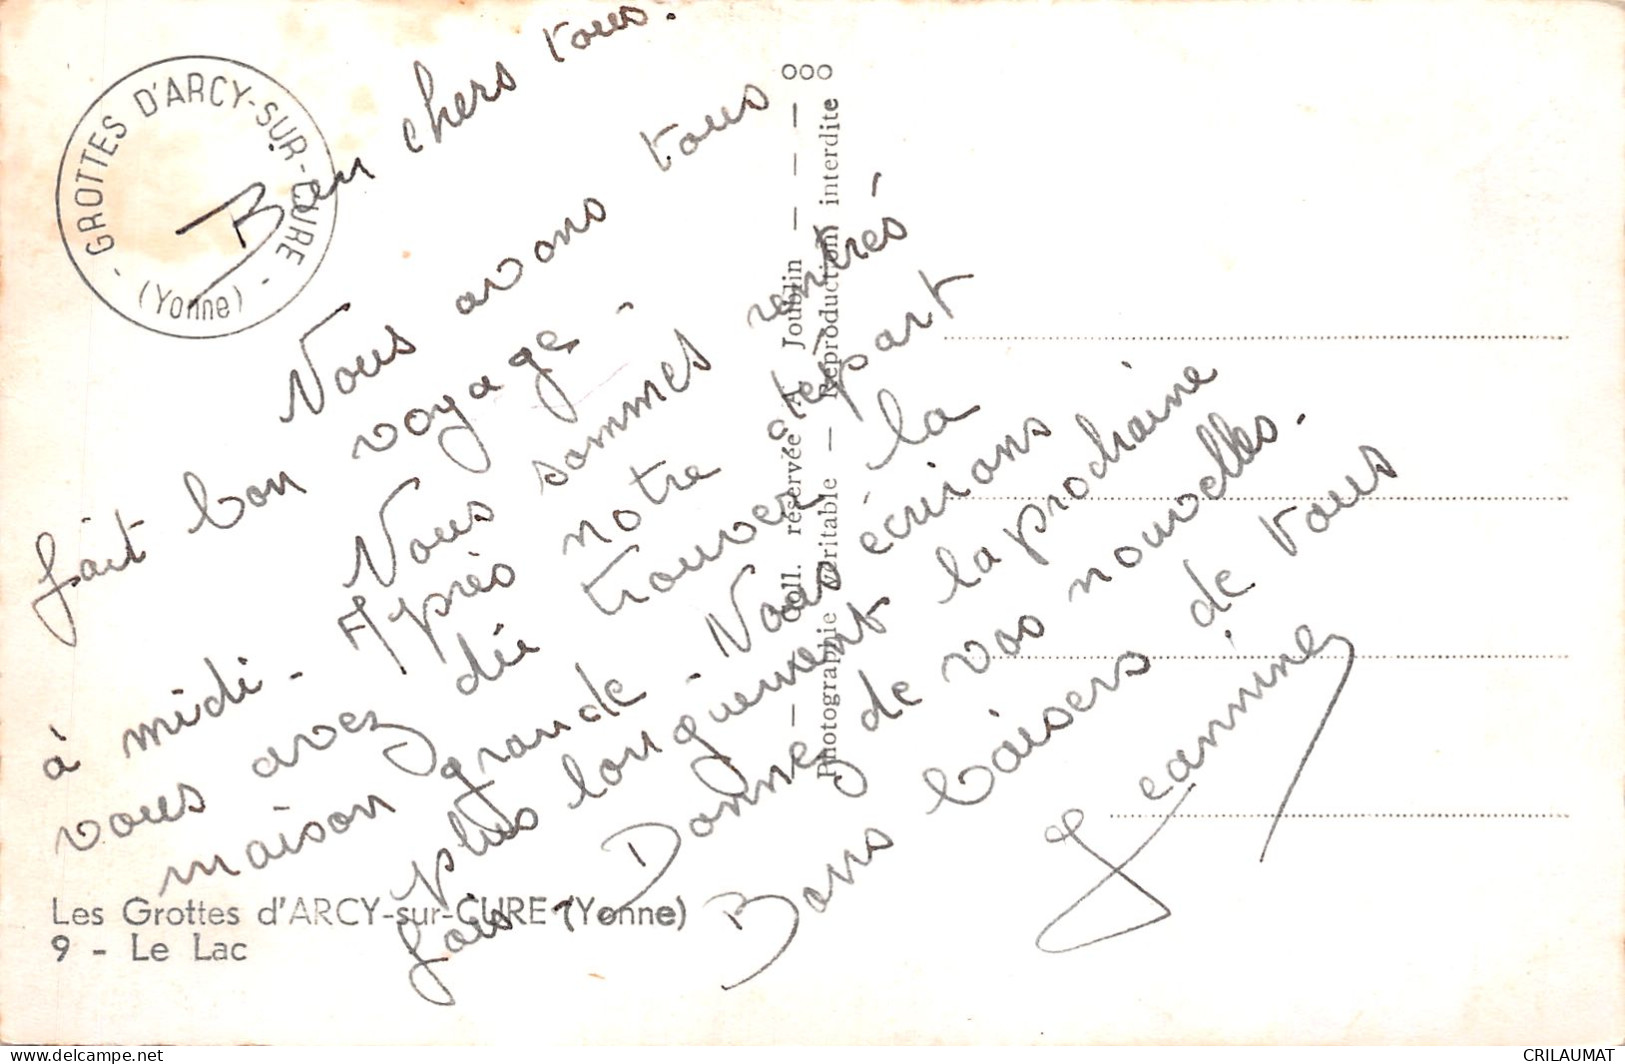 - GROTTES D'ARCY-SUR-CURE -
(Yonne)
Bien chers tous.
Nous avons tous
fait bon voyage.
Nous sommes rentrés
à midi - Après notre départ
vous avez dû trouver la
maison grande. Nous écrirons
plus longuement la prochaine
fois - Donnez de vos nouvelles.
Bons baisers de tous
Jeannine
ooo
— Coll. réservée A. Joublin — — — —
Photographie véritable — Reproduction interdite
Les Grottes d'ARCY-sur-CURE (Yonne)
9 - Le Lac
www.delcampe.net
CRILAUMAT